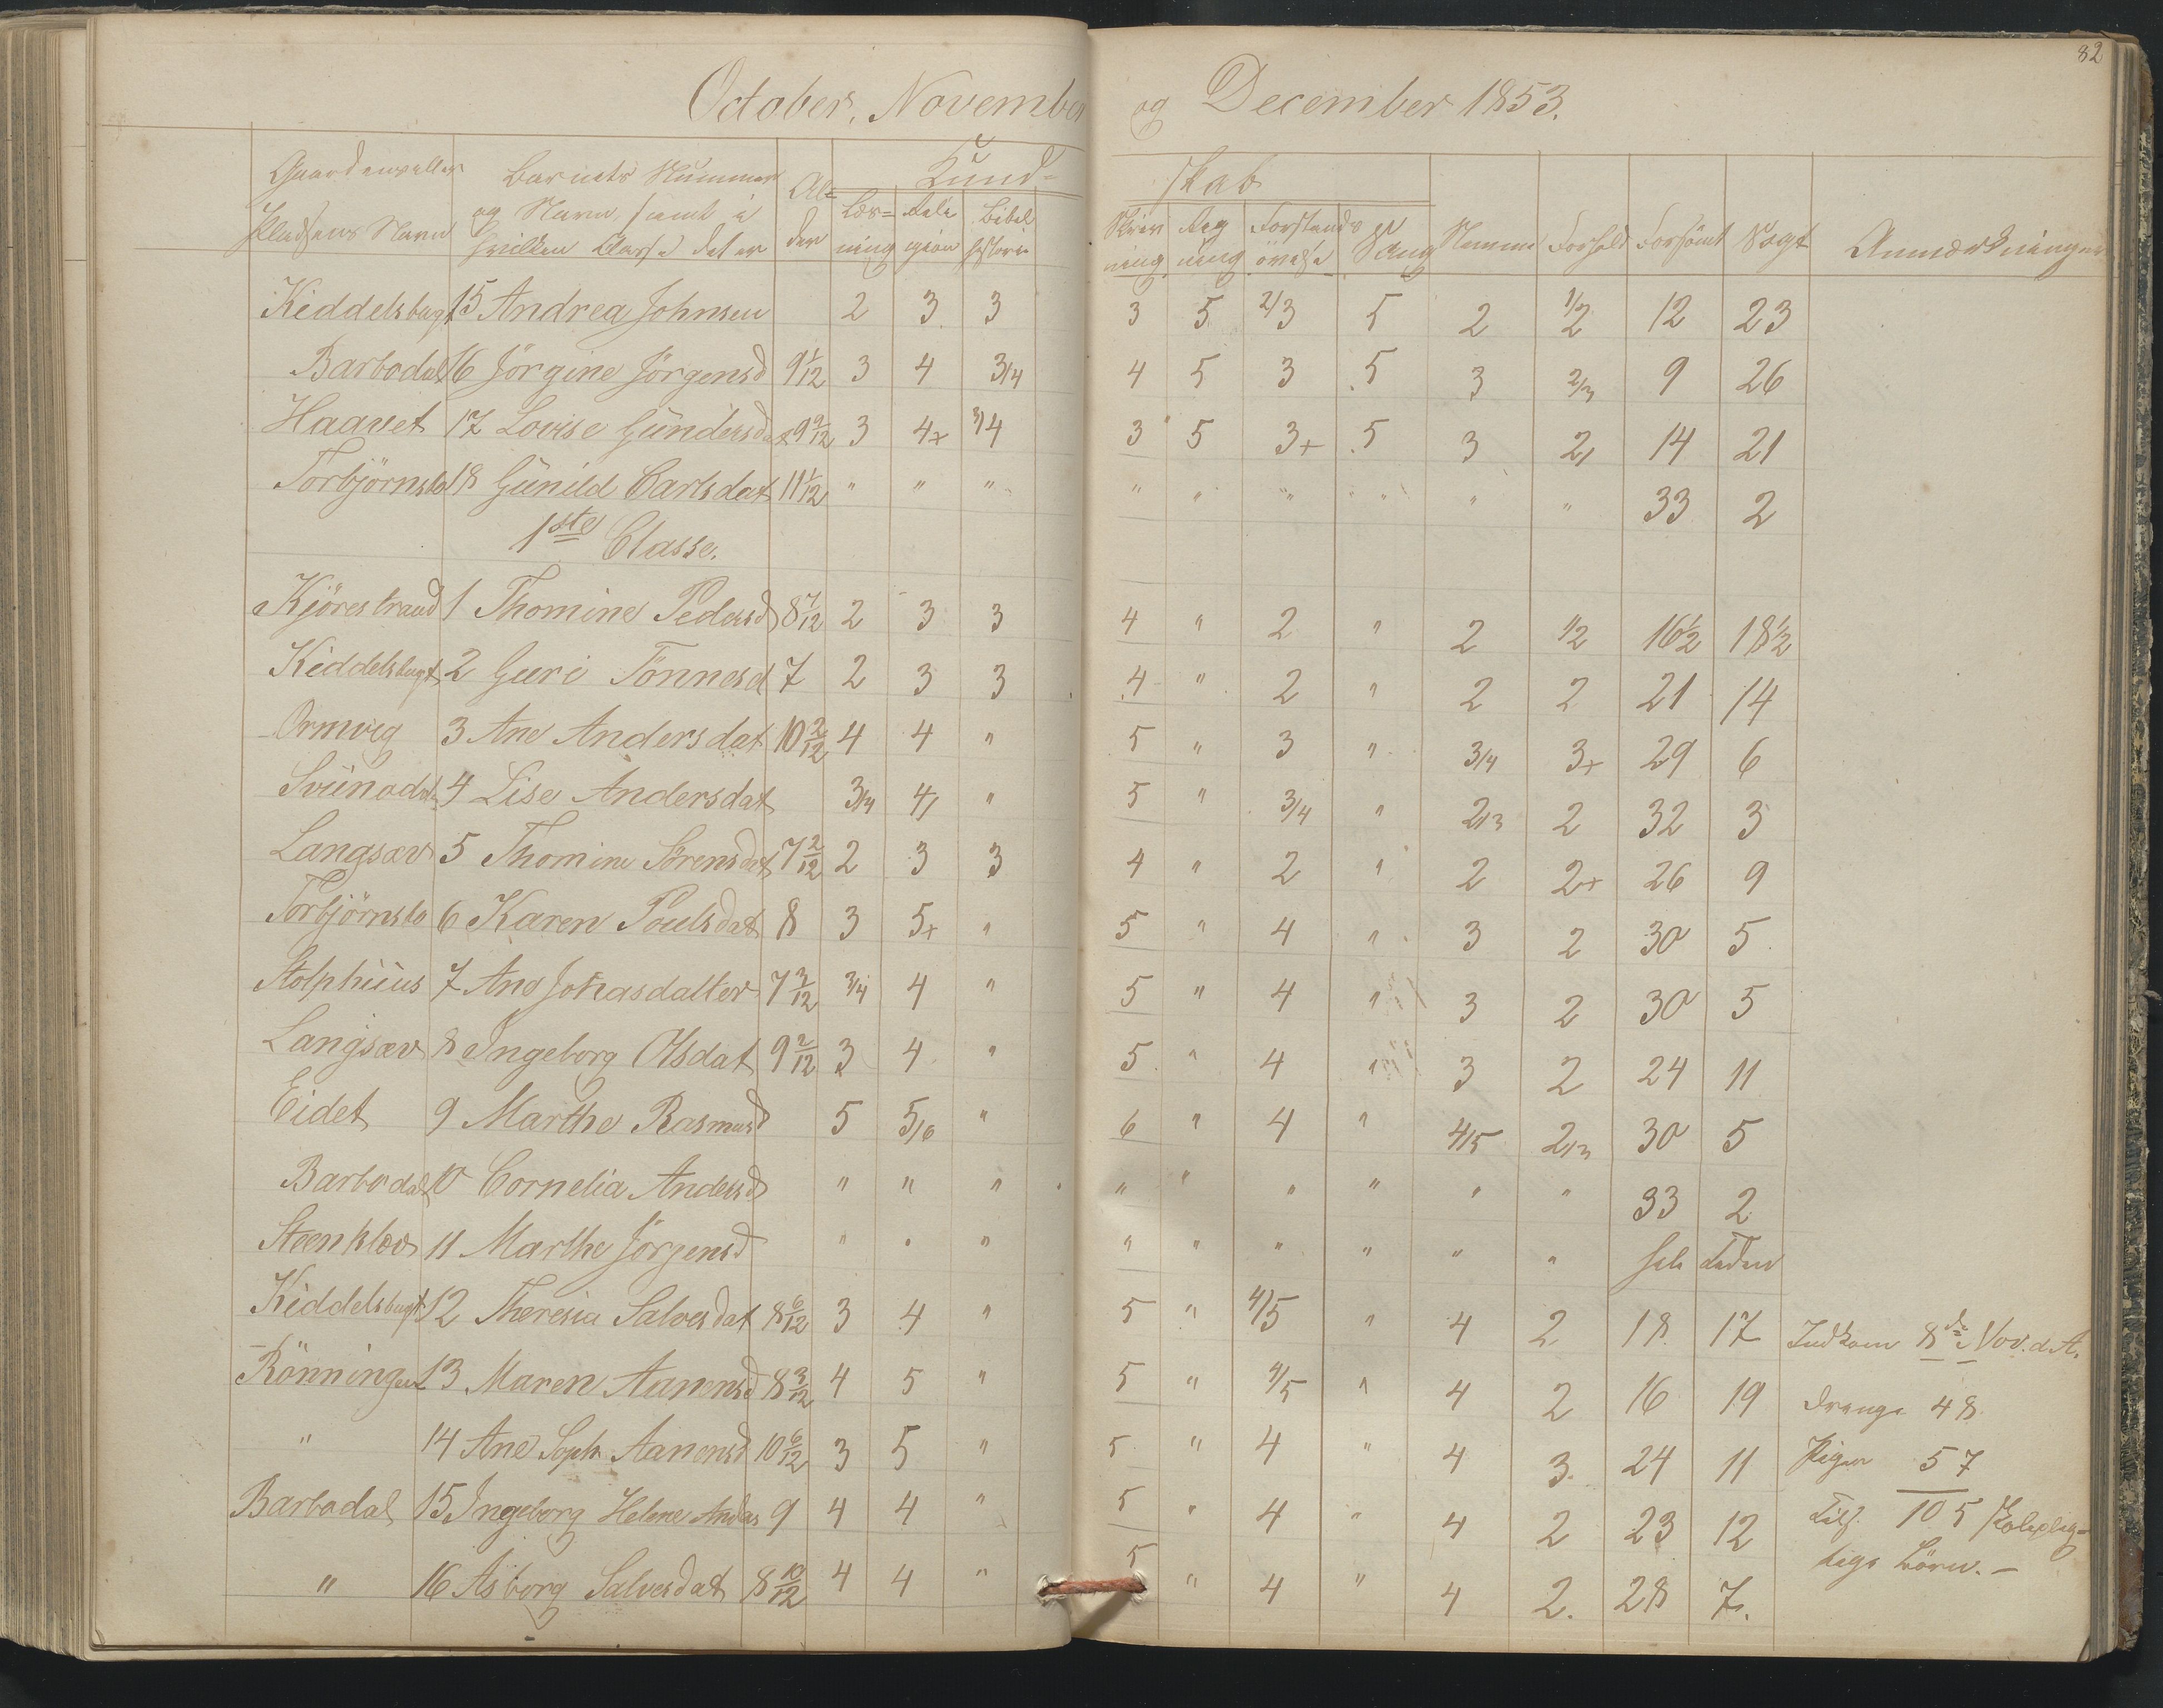 82
October, November og December 1853.
Gaardens eller Pladsens Navn | Barnets Nummer og Navn, samt i hvilken Classe det er | Al=der | Kund=skab | Nemme | Forhold | Forsömt | Sögt | Anmærkninger
Læs=ning | Reli gion | Bibel historie | Skriv ning | Reg ning | Forstands övelse | Sang
Kiddelsbugt 15 Andrea Johnsen 2 3 3 3 5 2/3 5 2 1/2 12 23
Barbodal 16 Jörgine Jörgensd 9 1/12 3 4 3/4 4 5 3 5 3 2/3 9 26
Haavet 17 Lovise Gündersdat 9 9/12 3 4+ 3/4 3 5 3+ 5 3 2/ 14 21
Torbjörnsbo 18 Günild Carlsdat 11 1/12 " " " " " " " " " 33 2
1ste Classe.
Kjörestrand 1 Thomine Pedersd 8 7/12 2 3 3 4 " 2 " 2 1/2 16½ 18½
Kiddelsbugt 2 Guri Tönnesd 7 2 3 3 4 " 2 " 2 2 21 14
Ormvig 3 Ane Andersdat 10 2/12 4 4 " 5 " 3 " 3/4 3+ 29 6
Sviinodal 4 Lise Andersdat 3/4 4/ " 5 " 3/4 " 2/3 2 32 3
Langsæv 5 Thomine Sörensdat 7 2/12 2 3 3 4 " 2 " 2 2+ 26 9
Torbjörnsbo 6 Karen Poulsdat 8 3 5+ " 5 " 4 " 3 2 30 5
Stolphuus 7 Ane Johasdatter 7 3/12 3/4 4 " 5 " 4 " 3 2 30 5
Langsæv 8 Ingeborg Olsdat 9 2/12 3 4 " 5 " 4 " 3 2 24 11
Eidet 9 Marthe Rasmusd 5 5/6 " 6 " 4 " 4/5 2/3 30 5
Barbodal 10 Cornelia Andersd " " " " " " " " " 33 2
Steenklöv 11 Marthe Jörgensd " " " " " " " " " hele Tiden
Kiddelsbugt 12 Theresia Salvesdat 8 6/12 3 4 " 5 " 4/5 " 4 2 18 17 Indkom 8de Nov. d. A.
Rönningen 13 Maren Aanensd 8 3/12 4 5 " 5 " 4/5 " 4 2 16 19 Drenge 48
" 14 Ane Soph. Aanensd 10 6/12 3 5 " 5 " 4 " 4 3. 24 11 Piger 57
Barbodal 15 Ingeborg Helene Anders 9 4 4 " 5 " 4 " 4 2 23 12 Tils. 105 skoleplig=
" 16 Asborg Salvesdat 8 10/12 4 4 " 5 " 4 " 4 2. 28 7. tige Börn. —